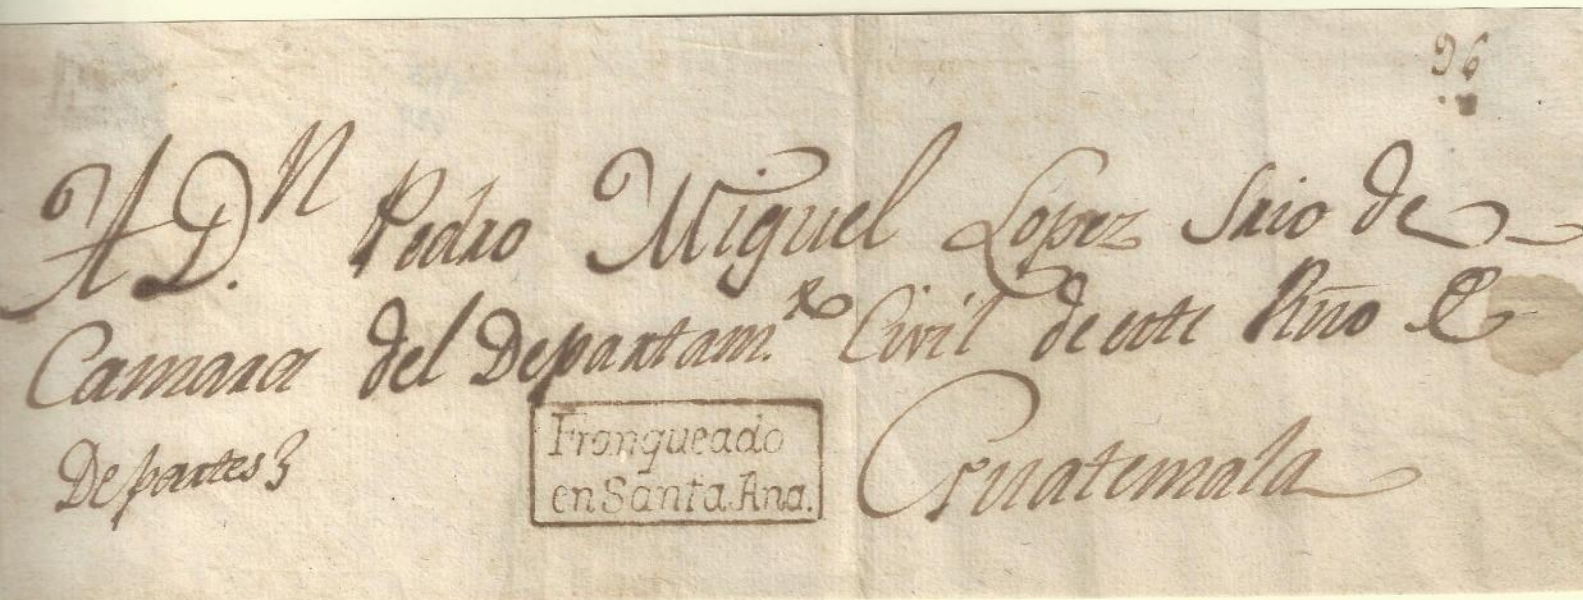 96
A Dn. Pedro Miguel Lopez Srio de
Camara del Departam.to Civil de este Rño
De partes
Franqueado
en Santa Ana.
Guatemala